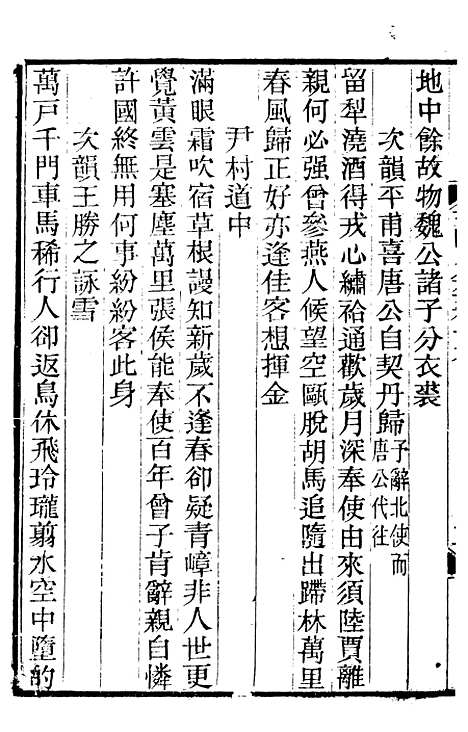 地中餘故物魏公諸子分衣裘
次韻平甫喜唐公自契丹歸予辭北使而唐公代往
留犁澆酒得戎心繡袷通歡歲月深奉使由來須陸賈離
親何必强曾參燕人候望空甌脫胡馬追隨出蹛林萬里
春風歸正好亦逢佳客想揮金
尹村道中
滿眼霜吹宿草根謾知新歲不逢春卻疑青嶂非人世更
覺黃雲是塞塵萬里張侯能奉使百年曾子肯辭親自憐
許國終無用何事紛紛客此身
次韻王勝之詠雪
萬戶千門車馬稀行人卻返鳥休飛玲瓏翦水空中墮的